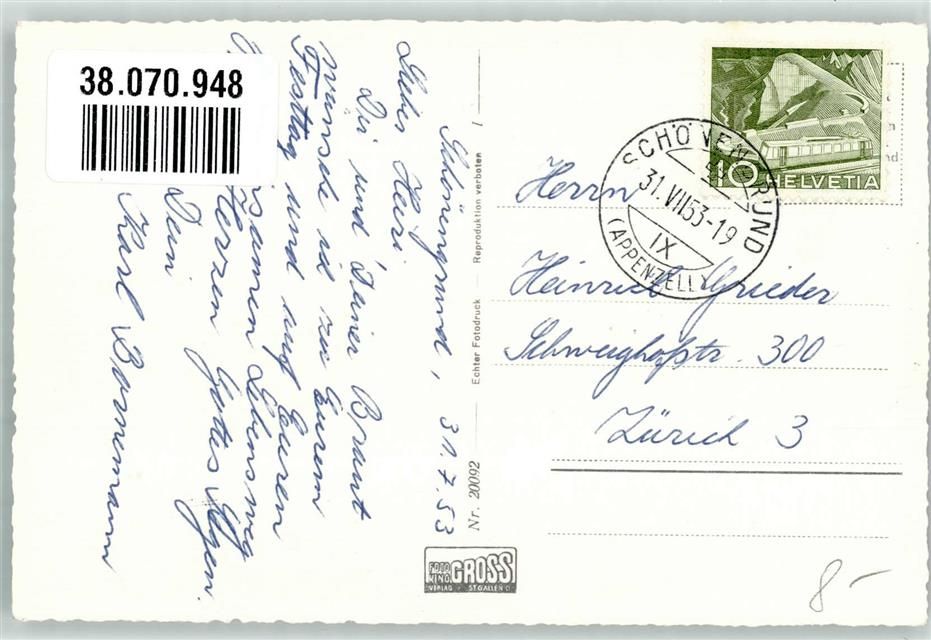 38.070.948
Schönengrund, 31.7.53
Lieber Heiri,
Dir und Deiner Braut
wünsche ich zu Eurem
Festtag und auf Euren
gemeinsamen Lebensweg
Herzen Gottes Segen.
Dein
Karl Bornemann
Echter Fotodruck Reproduktion verboten /
Nr. 20092
FOTO KINO GROSS
VERLAG ST.GALLEN
10 HELVETIA
SCHÖNENGRUND
31.VII.53-19
IX
(APPENZELL)
Herrn
Heinrich Grieder
Schweighofstr. 300
Zürich 3
8-